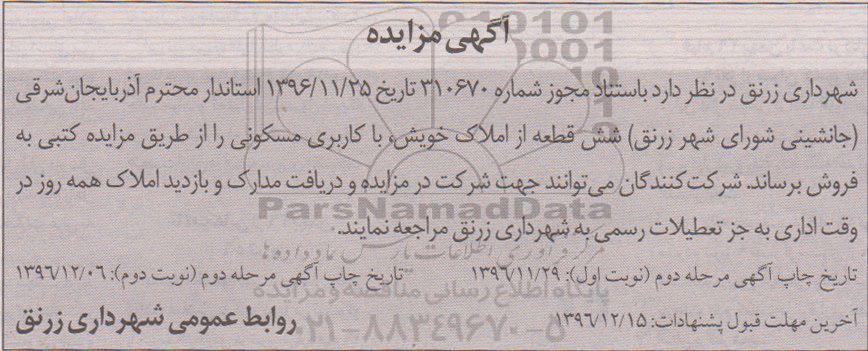 آگهی مزایده
شهرداری زرنق در نظر دارد باستناد مجوز شماره ۳۱۰۶۷۰ تاریخ ۱۳۹۶/۱۱/۲۵ استاندار محترم آذربایجان‌شرقی
(جانشینی شورای شهر زرنق) شش قطعه از املاک خویش، با کاربری مسکونی را از طریق مزایده کتبی به
فروش برساند. شرکت‌کنندگان می‌توانند جهت شرکت در مزایده و دریافت مدارک و بازدید املاک همه روز در
وقت اداری به جز تعطیلات رسمی به شهرداری زرنق مراجعه نمایند.
تاریخ چاپ آگهی مرحله دوم (نوبت اول): ۱۳۹۶/۱۱/۲۹ تاریخ چاپ آگهی مرحله دوم (نوبت دوم): ۱۳۹۶/۱۲/۰۶
آخرین مهلت قبول پشنهادات: ۱۳۹۶/۱۲/۱۵ روابط عمومی شهرداری زرنق
ParsNamadData
مرکز فرآوری اطلاعات پارس نماد داده ها
پایگاه اطلاع رسانی مناقصه و مزایده
۰۲۱-۸۸۳۴۹۶۷۰-۵